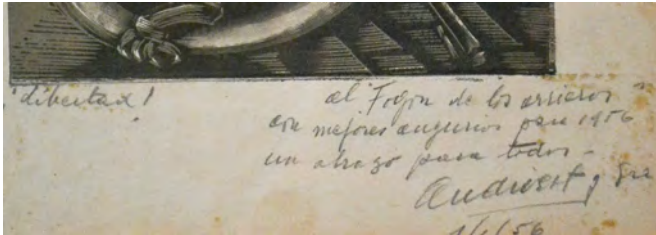 "libertad!
al Fogon de los arrieros"
con mejores augurios para 1956
un abrazo para todos -
Audivert, gra
1/1/56